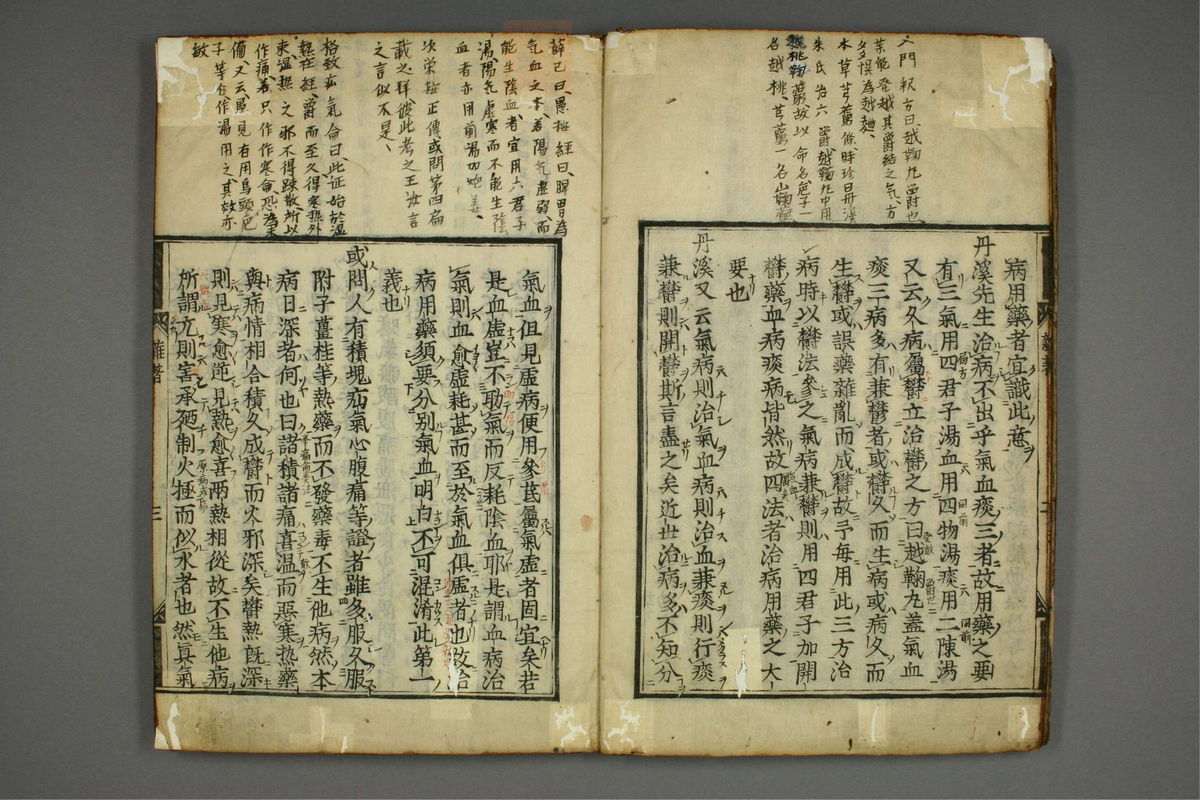 入門釈方曰越鞠丸鬱也
葉能発越其鬱結之気方
多誤為越麯
本草芎藭條時珍曰丹溪
朱氏治六鬱越鞠丸中用
越桃鞠藭故以命名巵子一
名越桃芎藭一名山鞠藭
病用藥者宜識此意
丹溪先生治病不出乎氣血痰三者故用藥之要
有三氣用四君子湯血用四物湯痰用二陳湯
又云久病屬鬱立治鬱之方曰越鞠丸蓋氣血
痰三病多有兼鬱者或鬱久而生病或病久而
生鬱或誤藥雜亂而成鬱故予每用此三方治
病時以鬱法參之氣病兼鬱則用四君子加開
鬱藥血病痰病皆然故四法者治病用藥之大
要也
丹溪又云氣病則治氣血病則治血兼痰則行痰
兼鬱則開鬱斯言盡之矣近世治病多不知分
薛己曰愚按經曰脾胃為
気血之本若陽気虚弱而
能生陰血者宜用六君子
湯陽気虚寒而不能生陰
血者亦用前湯加炮姜
次栄按正傳或問第四扁
載之詳彼此考之王汝言
之言似不是
格致疝氣侖曰此证始於湿
熱在經鬱而至久得寒热外
束湿热之邪不得踈散所以
作痛若只作作寒侖恐為未
備又云愚見有用烏頭巵
子等分作湯用之其效亦
敏
氣血但見虛病便用參芪屬氣虛者固宜矣若
是血虛豈不助氣而反耗陰血耶是謂血病治
氣則血愈虛耗甚而至於氣血俱虛者也故治
病用藥須要分別氣血明白不可混淆此第一
義也
或問人有積塊疝氣心腹痛等證者雖多服久服
附子薑桂等熱藥而不發藥毒不生他病然本
病日深者何也曰諸積諸痛喜温而惡寒热藥
與病情相合積久成鬱而火邪深矣鬱熱既深
則見寒愈逆見熱愈喜兩熱相從故不生他病
所謂亢則害承廼制火極而似水者也然真氣
雜著
三